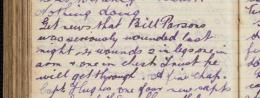 Nothing doing
Get news that Bill Parsons
was seriously wounded last
night, 4 wounds 2 in legs one in
arm & one in chest. Trust he
will get through. A fine chap.
Capt Hughes one four new capts